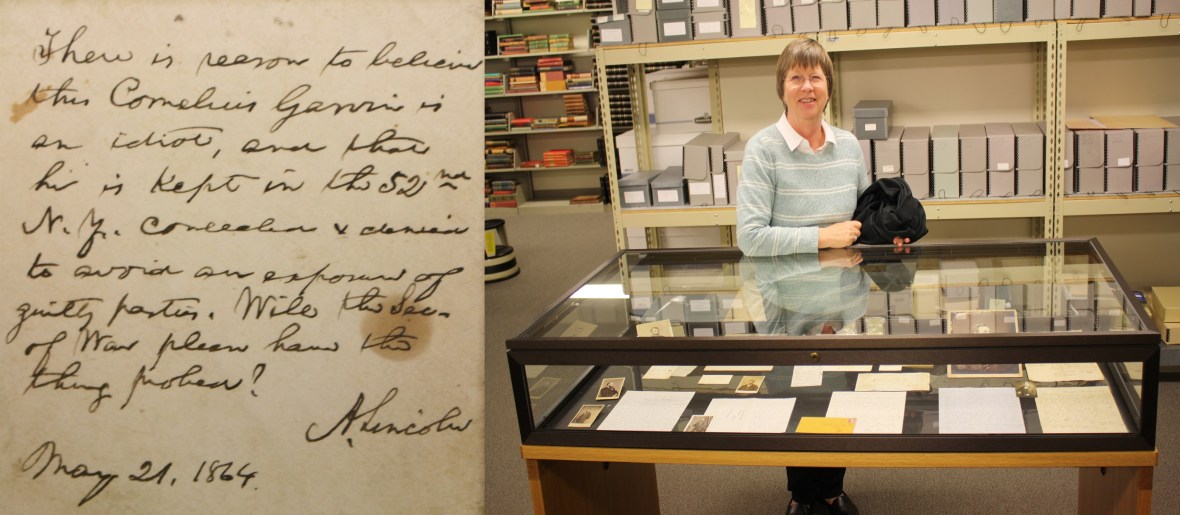 There is reason to believe
this Cornelius Garvin is
an idiot, and that
he is kept in the 52nd
N.Y. concealed & denied
to avoid an exposure of
guilty parties. Will the Sec.
of War please have the
thing probed?
A. Lincoln
May 21, 1864.